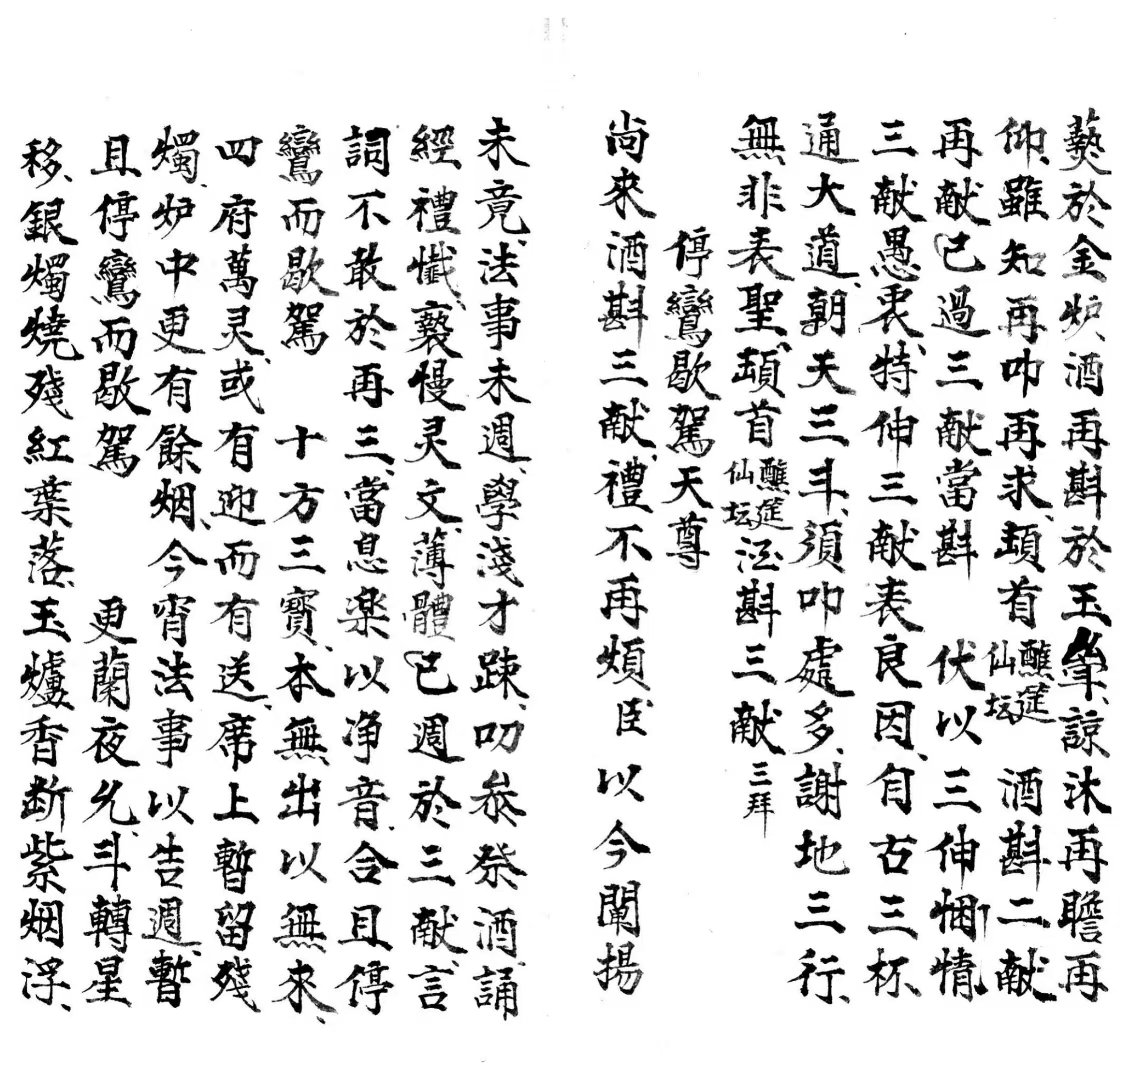 爇於金炉、酒再斟於玉斝、諒沐再瞻再
仰、雖知再叩再求、頓首醮筵仙坛 酒斟二献
再献已過三献當斟 伏以三伸悃情
三献愚衷、特伸三献表良因、自古三杯
通大道、朝天三斗、須叩處多、謝地三行、
無非表聖、頓首醮筵仙坛酒斟三献三拜
停鸞歇駕天尊
尚來酒斟三献、禮不再煩臣以今闡揚
未竟、法事未週、學淺才踈、叨叅祭酒、誦
經禮懺、褻慢灵文、薄體已週於三献、言
詞不敢於再三、當息楽以净音、合且停
鸞而歇駕 十方三寳、本無出以無來、
四府萬灵、或有迎而有送、席上暫留殘
燭、炉中更有餘烟、今宵法事以告週、暫
且停鸞而歇駕 更蘭夜久、斗轉星
移、銀燭燒殘紅葉落、玉爐香断紫烟浮、